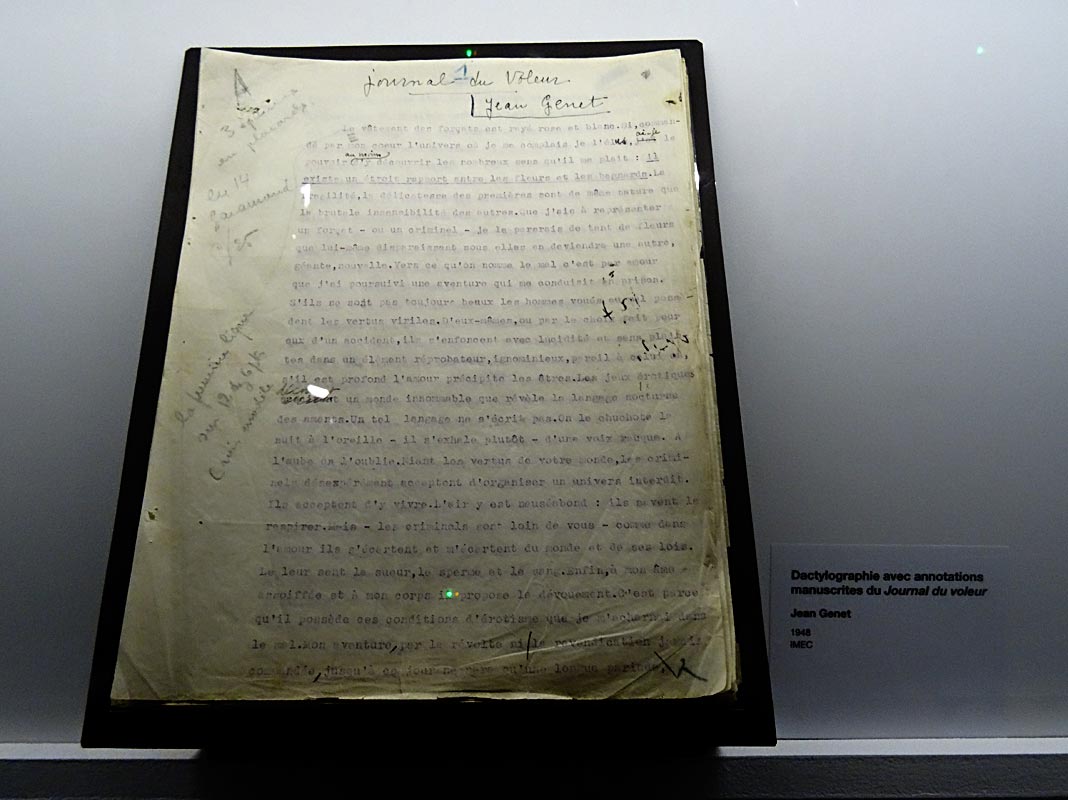 1
Journal du Voleur
Jean Genet
3
en placards
du 14
Garamond
la première ligne
sur 12 de 6/6
Le vêtement des forçats est rayé rose et blanc.Si,comman-
dé par mon coeur l'univers où je me complais je l'élus, le
au moins
pouvoir d'y découvrir les nombreux sens qu'il me plait : il
existe un étroit rapport entre les fleurs et les bagnards.La
fragilité,la délicatesse des premières sont de même nature que
la brutale insensibilité des autres.Que j'aie à représenter
un forçat - ou un criminel - je le parerais de tant de fleurs
que lui-même disparaissant sous elles en deviendra une autre,
géante,nouvelle.Vers ce qu'on nomme le mal c'est par amour
que j'ai poursuivi une aventure qui me conduisit en prison.
S'ils ne sont pas toujours beaux les hommes voués au mal possè-
dent les vertus viriles.D'eux-mêmes,ou par le choix fait pour
eux d'un accident,ils s'enfoncent avec lucidité et sans plain-
tes dans un élément réprobateur,ignominieux,pareil à celui où,
s'il est profond l'amour précipite les êtres.Les jeux érotiques
un monde innommable que révèle le langage nocturne
des amants.Un tel langage ne s'écrit pas.On le chuchote la
nuit à l'oreille - il s'exhale plutôt - d'une voix rauque. A
l'aube on l'oublie.Niant les vertus de votre monde,les crimi-
nels désespérément acceptent d'organiser un univers interdit.
Ils acceptent d'y vivre.L'air y est nauséabond : ils savent le
respirer.Mais - les criminels sont loin de vous - comme dans
l'amour ils s'écartent et m'écartent du monde et de ses lois.
Le leur sent la sueur,le sperme et le sang.Enfin,à mon âme
assoiffée et à mon corps il propose le dévouement.C'est parce
qu'il possède ces conditions d'érotisme que je m'acharnai dans
le mal.Mon aventure,par la révolte ni la revendication jamais
commandée,jusqu'à ce jour ne sera qu'une longue pariade,
Dactylographie avec annotations
manuscrites du Journal du voleur
Jean Genet
1948
IMEC